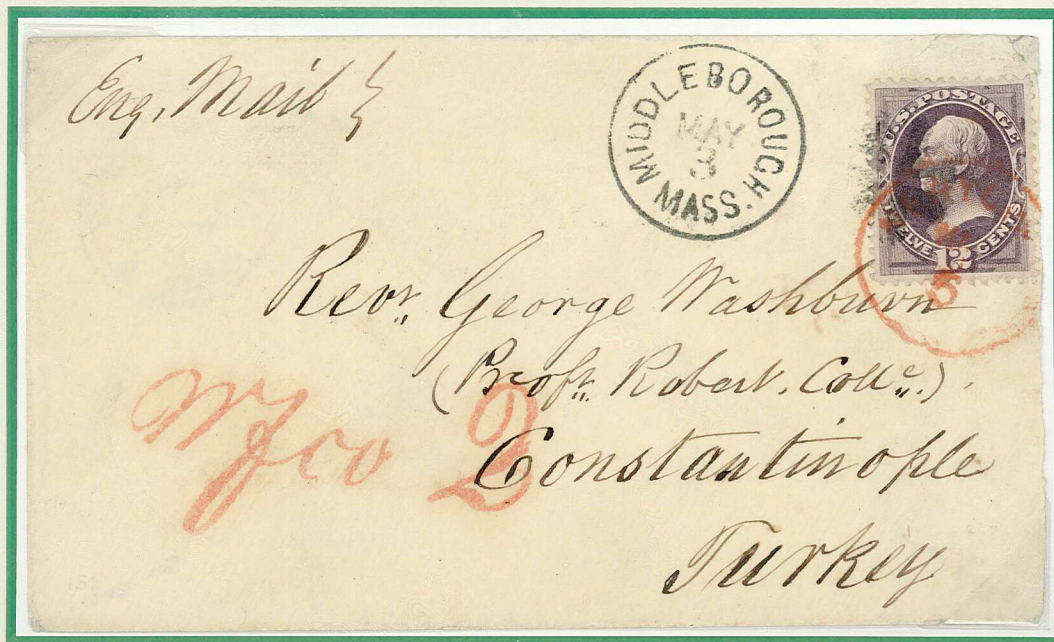 Eng. Mail
MIDDLEBOROUGH
MAY
3
MASS.
U.S. POSTAGE
TWELVE 12 CENTS
5
Revr. George Washburn
(Profr. Robert. Colle.).
Constantinople
Turkey
Wfco 2
15